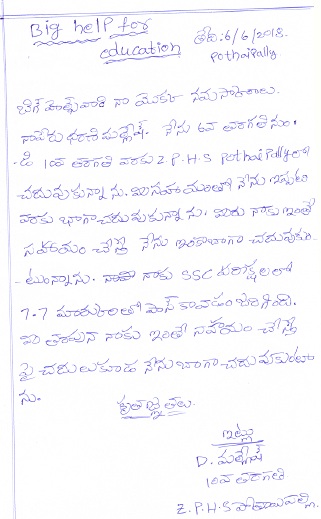 Big help for
education
తేది: 6/6/2018.
Pothaipally
బిగ్ హెల్ప్ వారికి నా యొక్క నమస్కారాలు.
నాపేరు ధరణి మల్లేష్. నేను 6వ తరగతి నుం-
-డి 10వ తరగతి వరకు Z.P.H.S Pothaipally లో
చదువుకున్నాను. మీ సహాయంతో నేను ఇప్పటి
వరకు బాగా చదువుకున్నాను. మీరు నాకు ఇంతే
సహాయం చేస్తే నేను ఇంకా బాగా చదువుకుం-
-టున్నాను. నాకు SSC పరీక్షలలో
7.7 మార్కులతో పాస్ కావడం జరిగింది.
మీ తరపున నాకు ఇంతే సహాయం చేస్తే
పై చదులుకూడ నేను బాగా చదువుకుంటా
ను.
కృతజ్ఞతలు.
ఇట్లు
D. మల్లేష్
10వ తరగతి
Z.P.H.S పోతాయిపల్లి.